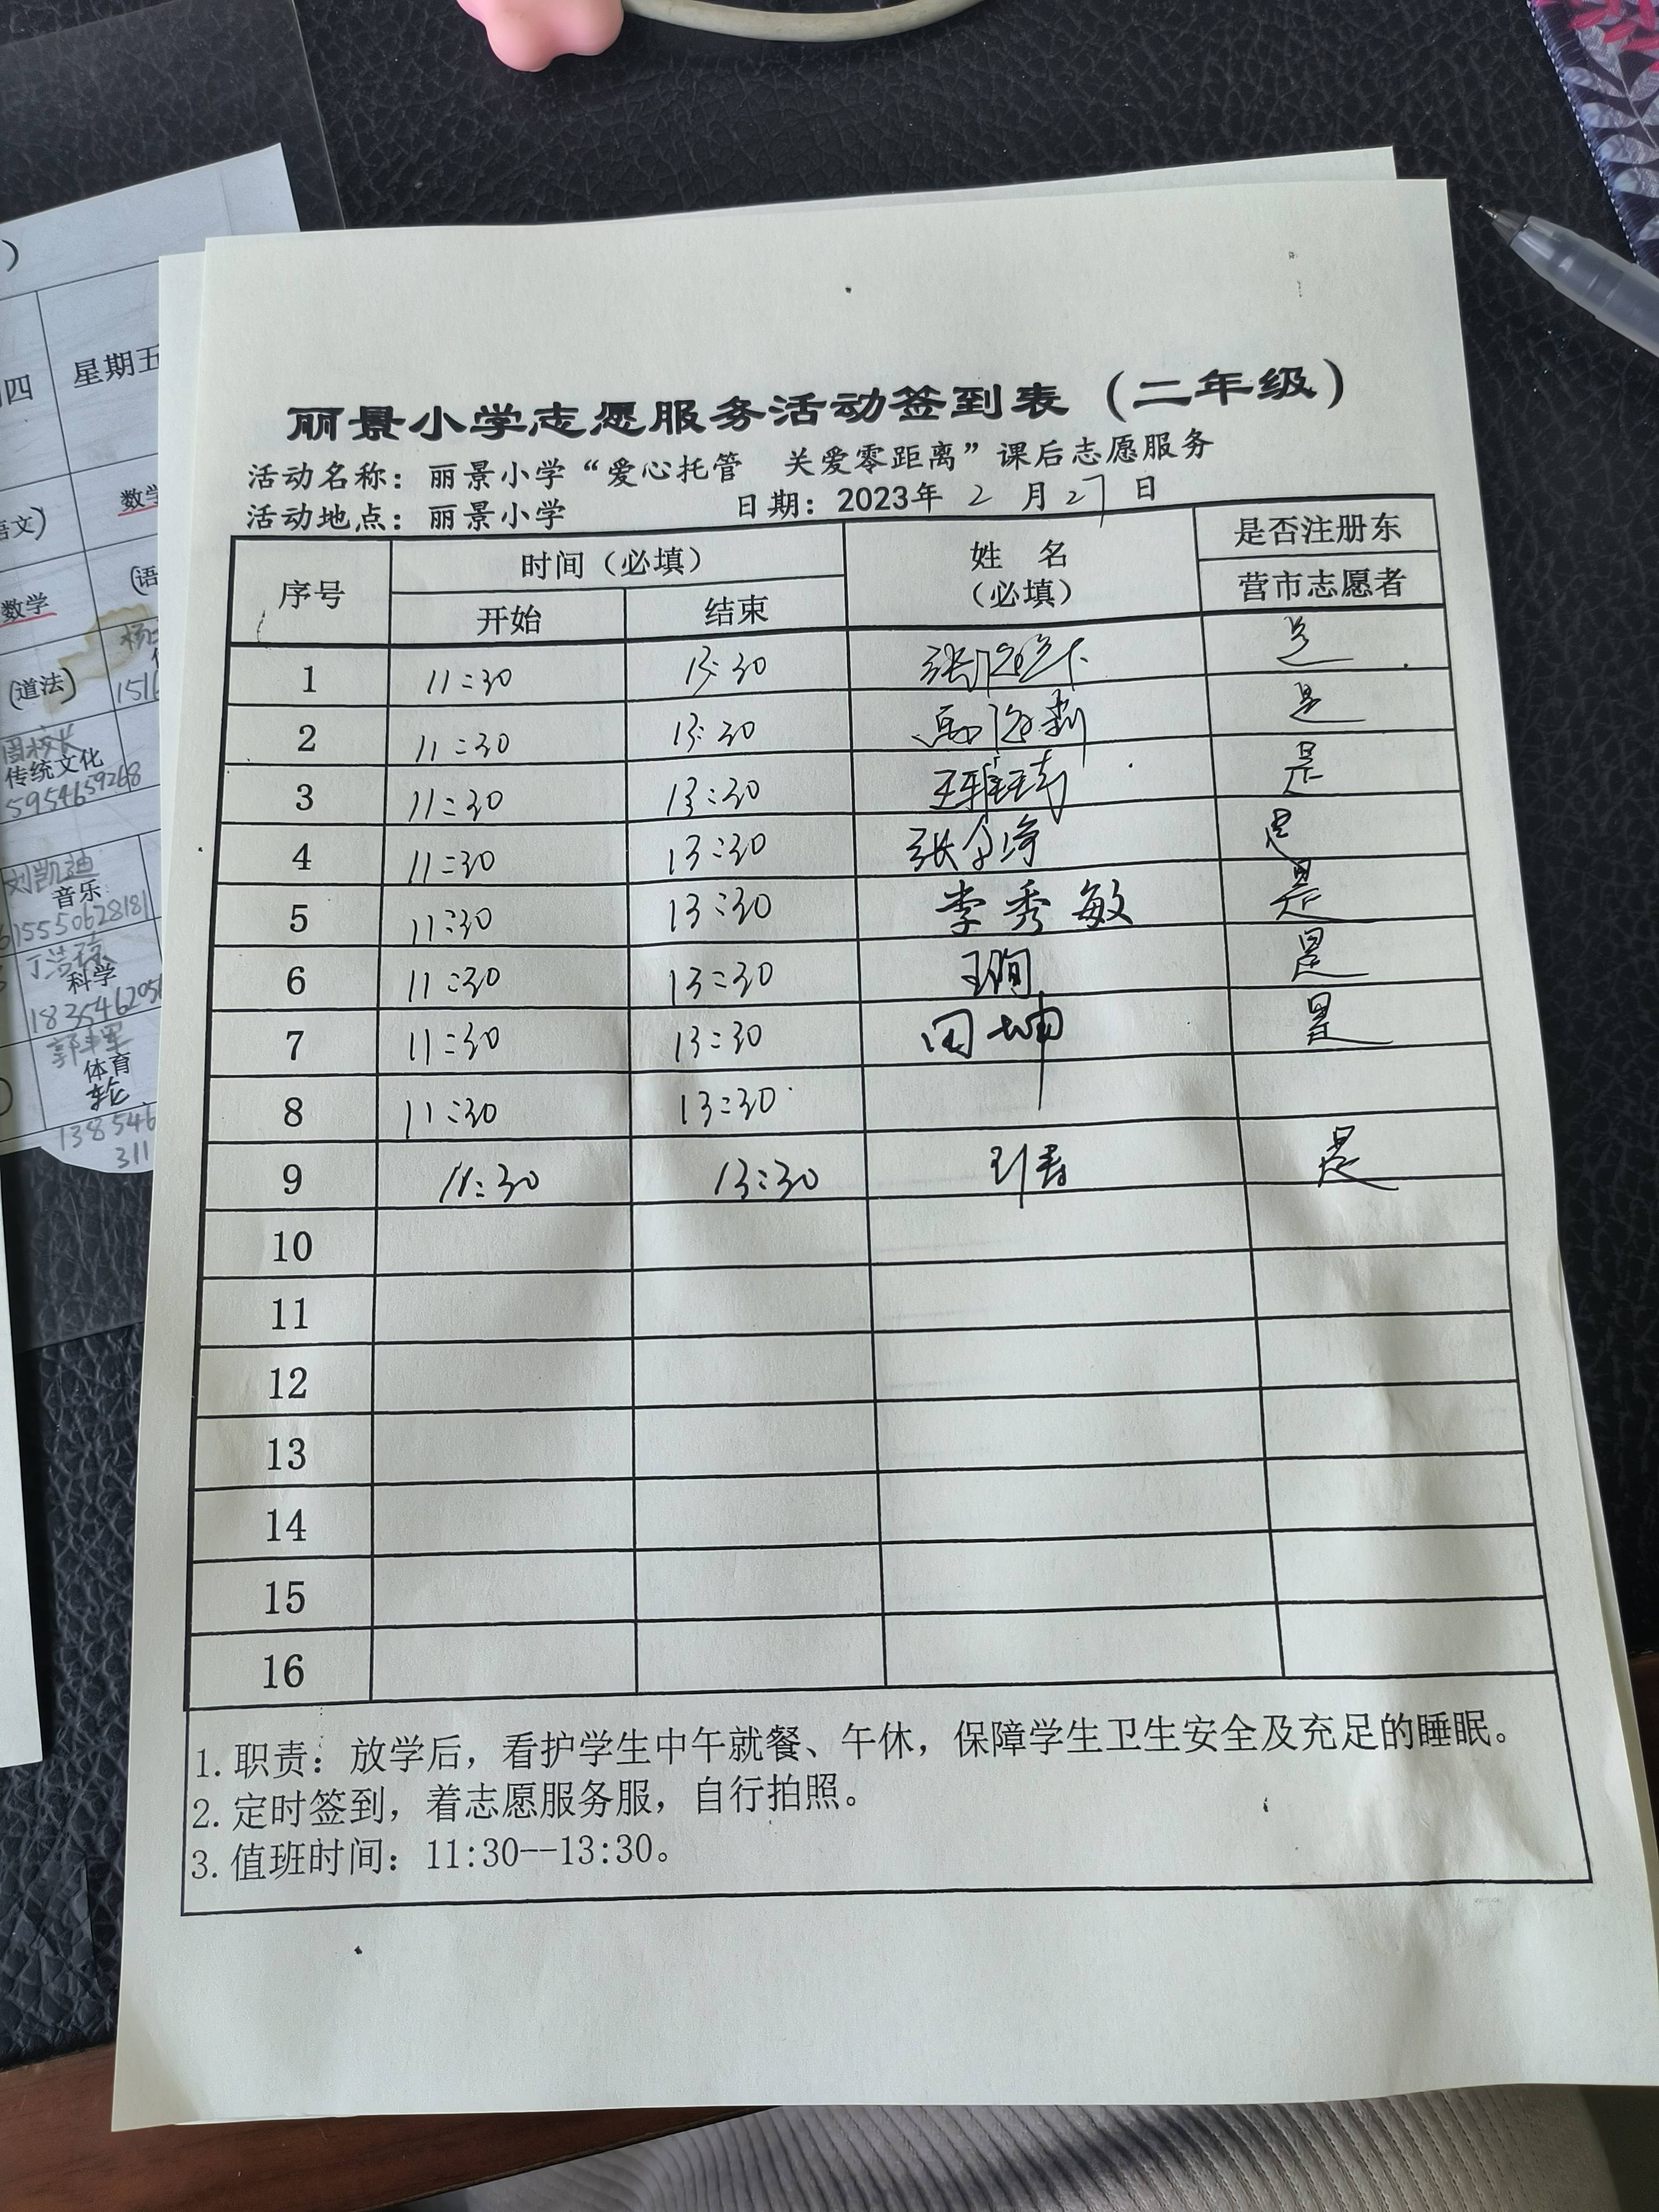 丽景小学志愿服务活动签到表（二年级）
活动名称：丽景小学“爱心托管 关爱零距离”课后志愿服务
活动地点：丽景小学 日期：2023年 2 月 27 日
序号 时间（必填） 姓 名（必填） 是否注册东营市志愿者
开始 结束
1 11:30 13:30 是
2 11:30 13:30 是
3 11:30 13:30 王雅琦 是
4 11:30 13:30 张 是
5 11:30 13:30 李秀敏 是
6 11:30 13:30 是
7 11:30 13:30 田坤 是
8 11:30 13:30
9 11:30 13:30 是
10
11
12
13
14
15
16
1.职责：放学后，看护学生中午就餐、午休，保障学生卫生安全及充足的睡眠。
2.定时签到，着志愿服务服，自行拍照。
3.值班时间：11:30--13:30。
四 星期五
语文) 数学
数学 (语
(道法)
传统文化
15954659268
刘凯迪
音乐
15550628181
科学
体育
138546
311